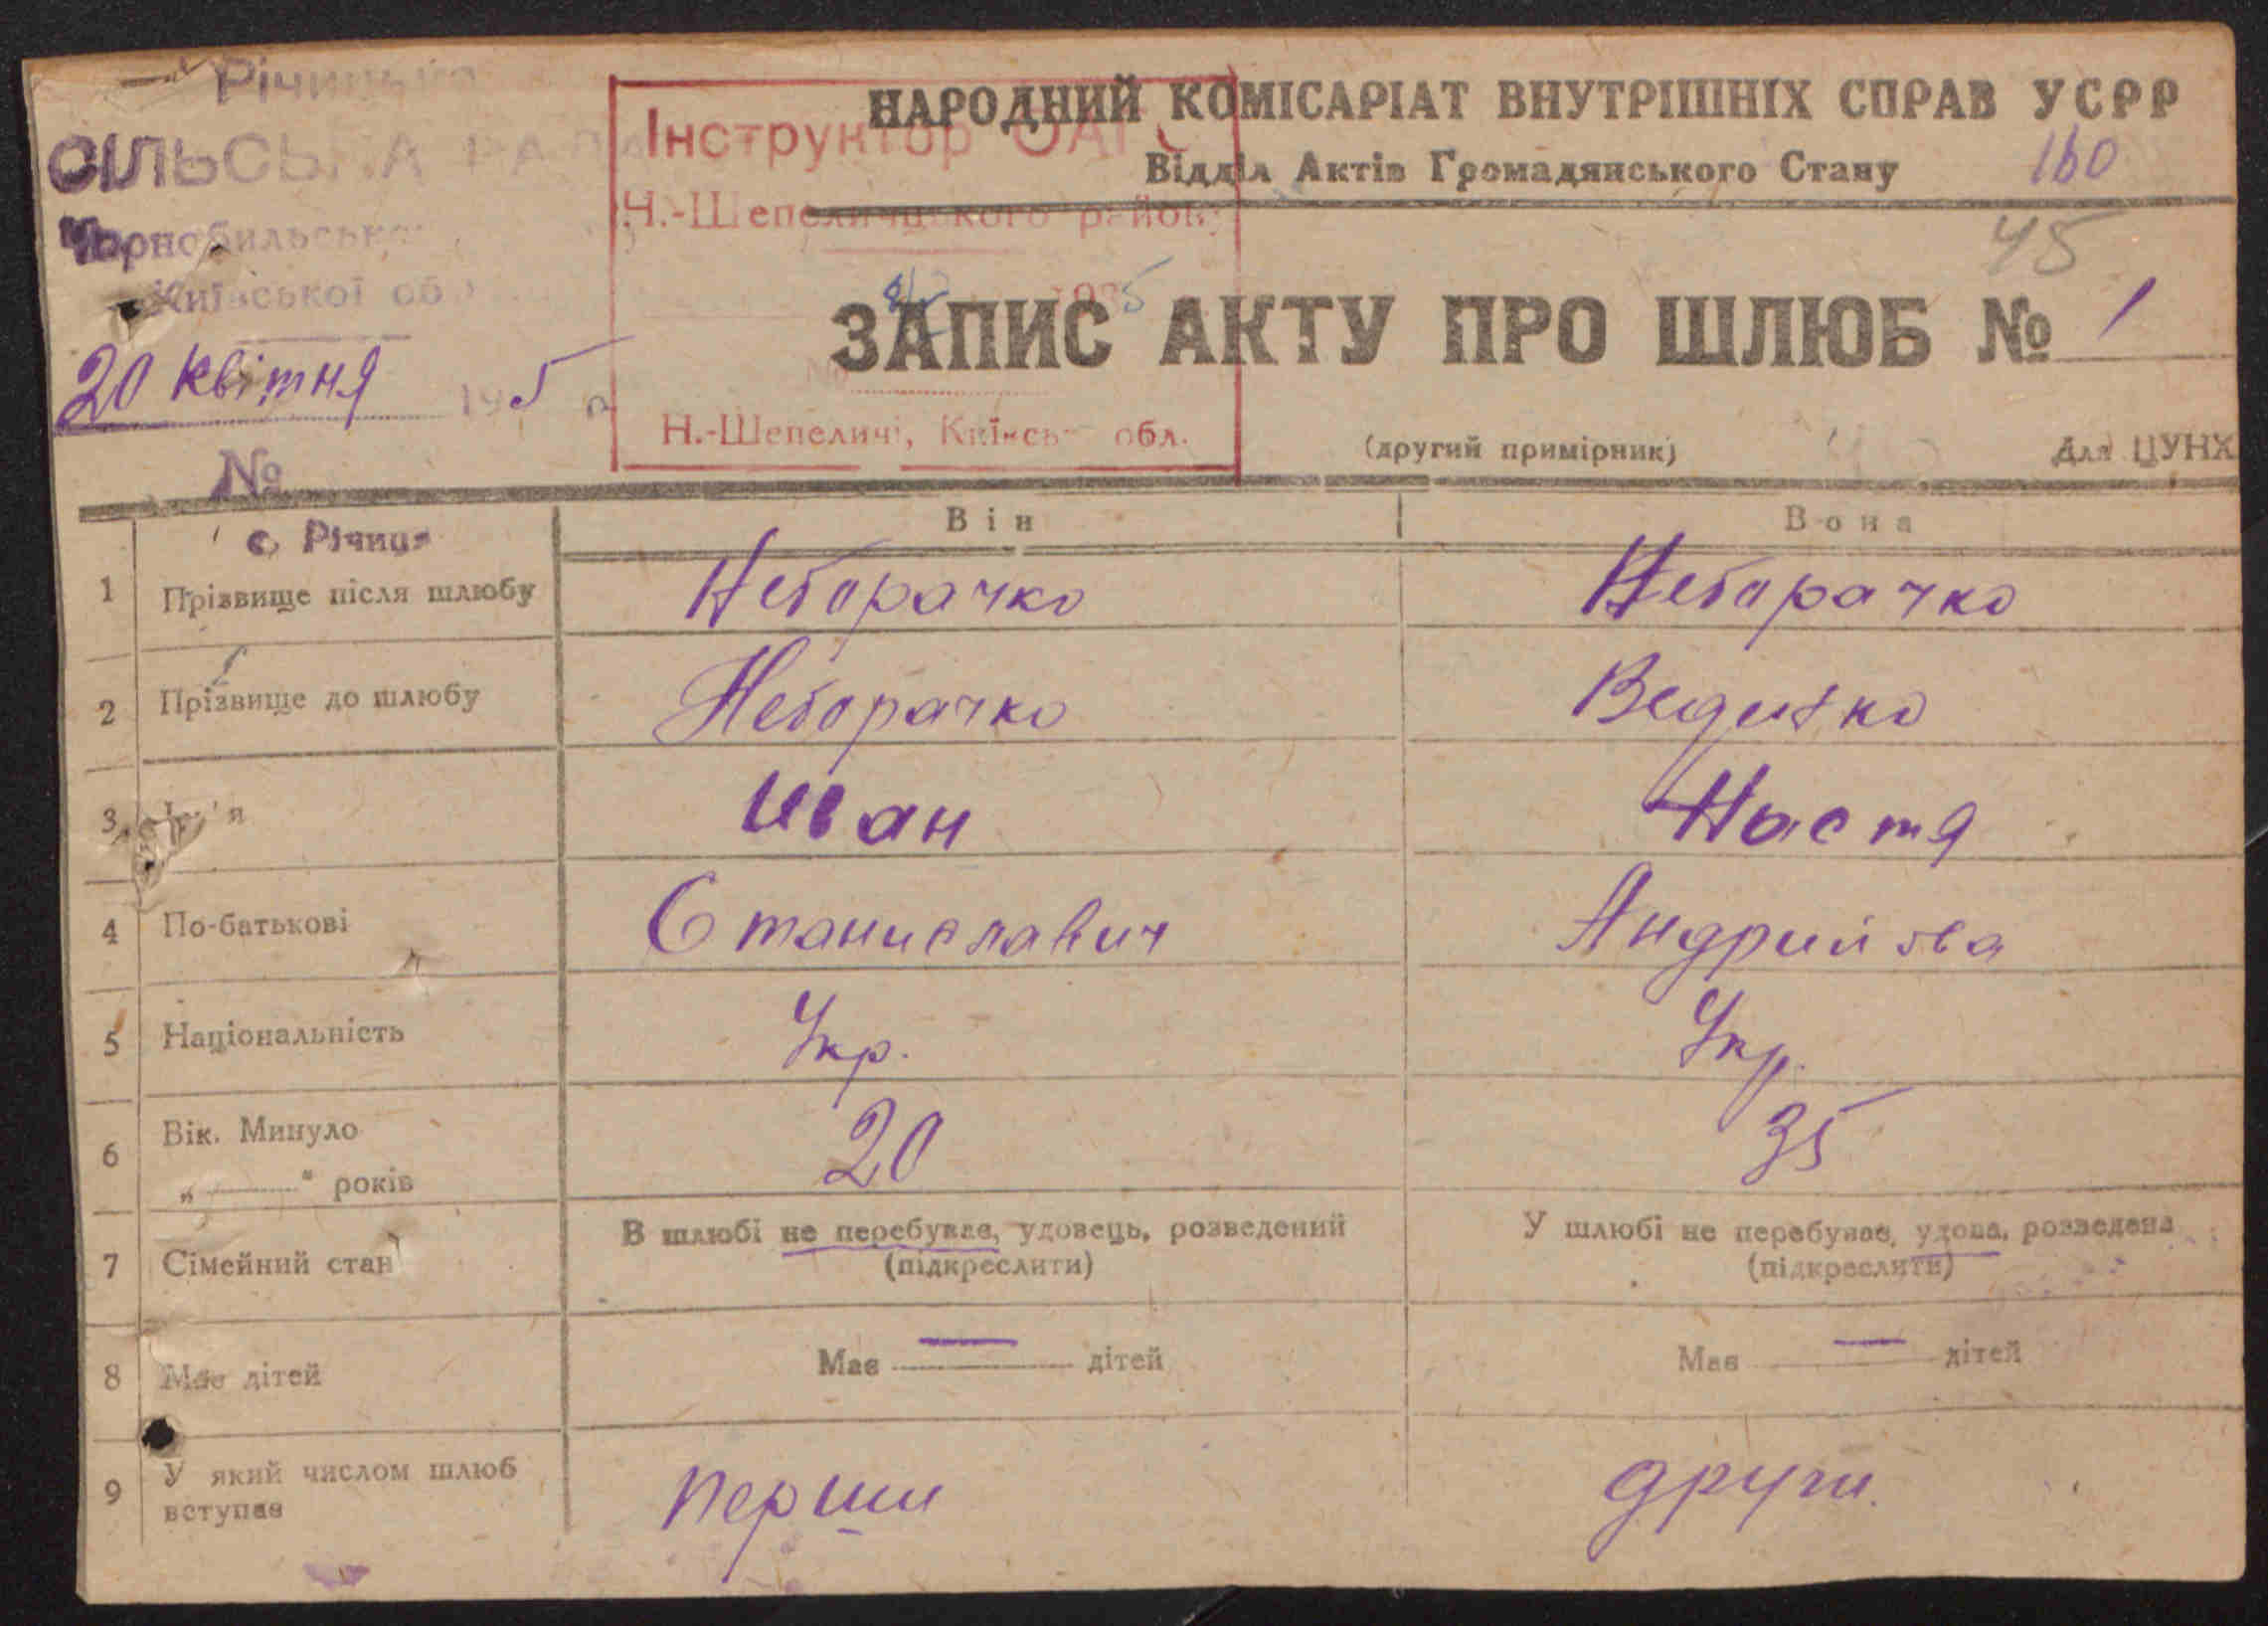 Річицька
СІЛЬСЬКА РАДА
Чорнобильськ
Київської обл
20 квітня 1935 р
№
с. Річиця
Інструктор ОАГС
Н.-Шепелицького району
5
№
Н.-Шепеличі, Київськ обл.
НАРОДНИЙ КОМІСАРІАТ ВНУТРІШНІХ СПРАВ УСРР
Відділ Актів Громадянського Стану
160
45
ЗАПИС АКТУ ПРО ШЛЮБ № 1
(другий примірник) Для ЦУНХ
Він Вона
1 Прізвище після шлюбу Неборачко Неборачко
2 Прізвище до шлюбу Неборачко
3 Ім'я Иван Настя
4 По-батькові Станиславич Андрийова
5 Національність Укр. Укр.
6 Вік. Минуло 20 35
„ “ років
7 Сімейний стан В шлюбі не перебуває, удовець, розведений У шлюбі не перебуває, удова, розведена
(підкреслити) (підкреслити)
8 Має дітей Має — дітей Має — дітей
9 У який числом шлюб вступає перши други.